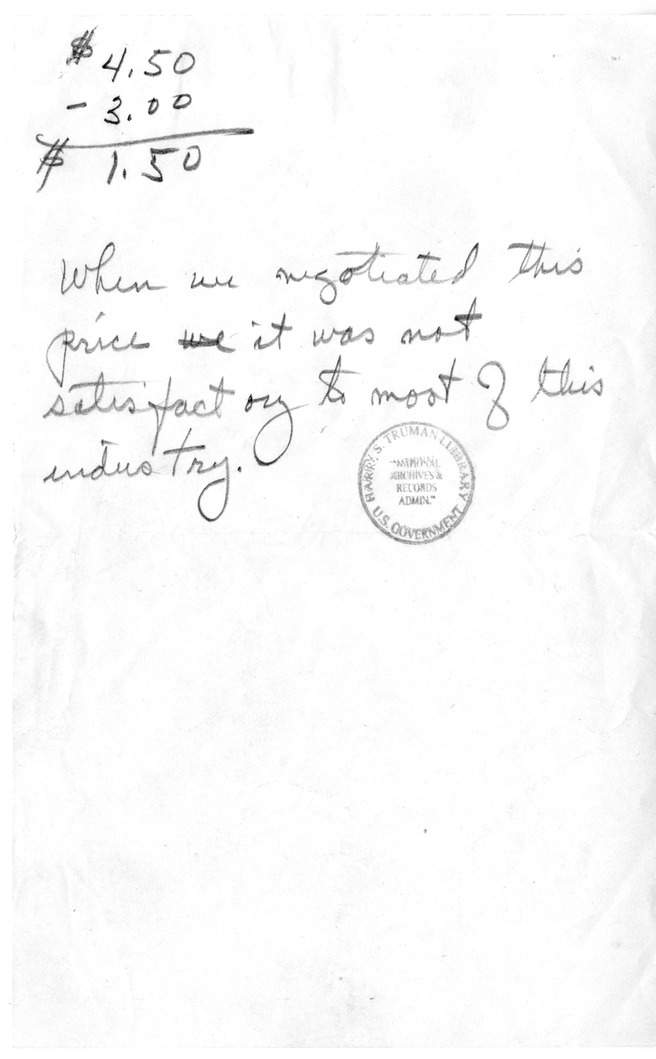 $ 4.50
- 3.00
$ 1.50
When we negotiated this
price we it was not
satisfactory to most of this
industry.
HARRY S. TRUMAN LIBRARY
"NATIONAL
ARCHIVES &
RECORDS
ADMIN."
U.S. GOVERNMENT